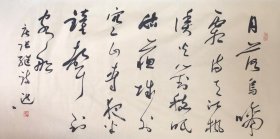 月落烏啼
霜满天江楓
漁火對愁眠
姑蘇城外
寒山寺夜半
鐘聲到
客船
唐張继詩